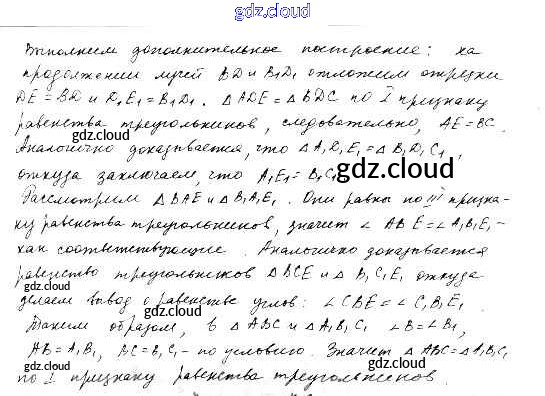 gdz.cloud
Выполним дополнительное построение: на
продолжении лучей BD и B₁D₁ отложим отрезки
DE = BD и D₁E₁ = B₁D₁. △ADE = △BDC по I признаку
равенства треугольников, следовательно, AE = BC.
gdz.cloud
gdz.cloud
Аналогично доказывается, что △A₁D₁E₁ = △B₁D₁C₁,
откуда заключаем, что A₁E₁ = B₁C₁
gdz.cloud
Рассмотрим △BAE и △B₁A₁E₁. Они равны по III призна-
gdz.cloud
ку равенства треугольников, значит ∠ABE = ∠A₁B₁E₁ -
как соответствующие. Аналогично доказывается
gdz.cloud
равенство треугольников △BCE и △B₁C₁E₁ откуда
gdz.cloud
делаем вывод о равенстве углов: ∠CBE = ∠C₁B₁E₁
gdz.cloud
Таким образом, в △ABC и △A₁B₁C₁ ∠B = ∠B₁,
AB = A₁B₁, BC = B₁C₁ - по условию. Значит △ABC = △A₁B₁C₁
gdz.cloud
gdz.cloud
по I признаку равенства треугольников.